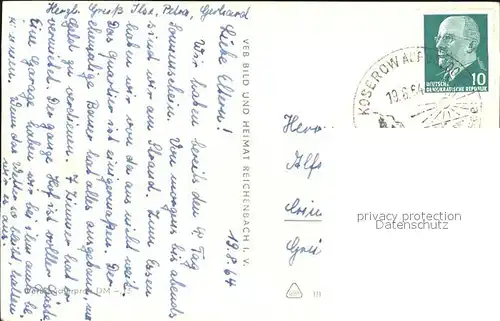 Herzl. Gruß Ilse, Petra, Gerhard
19.8.64
Liebe Eltern!
Wir haben bereits den 4. Tag
Sonnenschein. Von morgens bis abends
sind wir am Strand. Zum Essen
haben wir von da aus nicht weit.
Das Quartier ist einigermaßen. Der
ehemalige Bauer hat alles ausgebaut, um
Geld zu verdienen. 7 Zimmer hat er
vermietet. Der ganze Hof ist voller Gäste.
Eine Garage haben wir bei ihm auch be-
kommen. Wenn das Wetter so bleibt, halten
wir es aus.
VEB BILD UND HEIMAT REICHENBACH I. V.
DEUTSCHE
DEMOKRATISCHE REPUBLIK
10
KOSEROW AUF
19.8.64
Herr
Alfr
privacy protection
Datenschutz